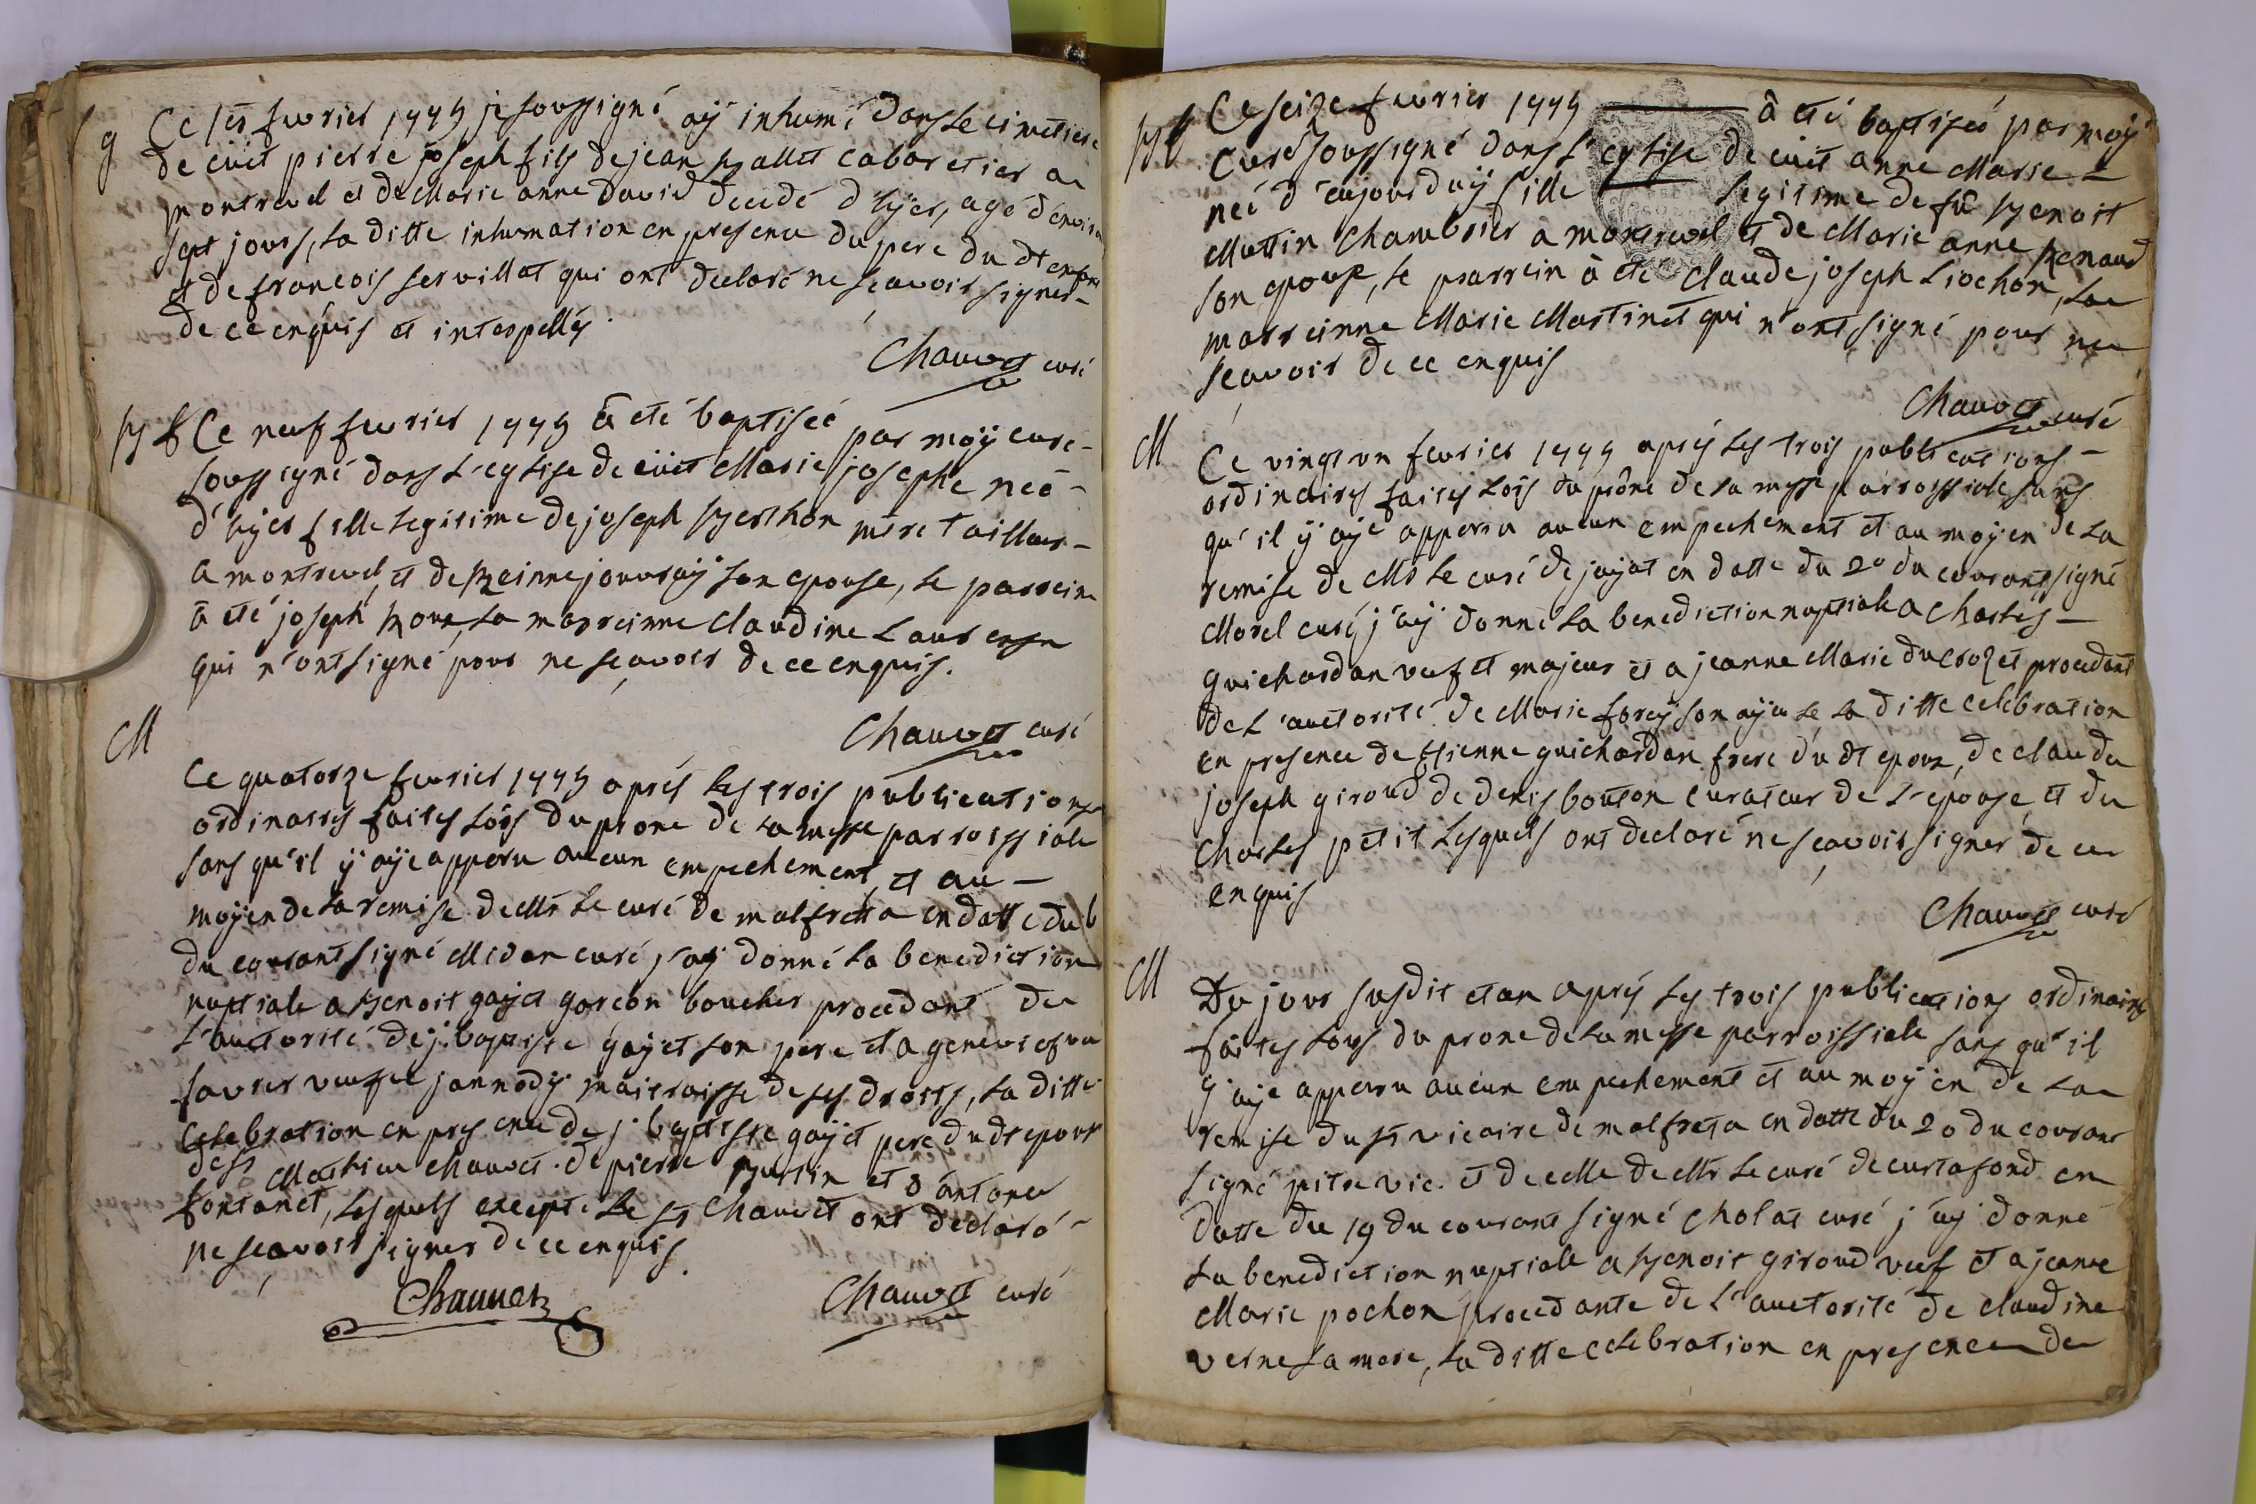 g
Ce 1er fevrier 1775 je soussigné aÿ inhumé dans le cimetiere
de cuet pierre joseph fils de jean Ballet cabaretier a
montrevel et de Marie anne david decedé d'hÿer, agé d'environ
sept jours, la ditte inhumation en presence du pere du dt enfant
et de francois servillat qui ont declaré ne sçavoir signer
de ce enquis et interpellés.
Chauvet curé
B f
Ce neuf fevrier 1775 à eté baptiseé par moÿ curé
soussigné dans l'eglise de cuet Marie josephe neé
d'hÿer fille legitime de joseph Berthon mtre tailleur
a montrevel, et de Reinne jouvraÿ son epouse, le parrein
à eté joseph Roux, la marreinne Claudine Laurenson
qui n'ont signé pour ne sçavoir de ce enquis.
Chauvet curé
M
Ce quatorze fevrier 1775 aprés les trois publications
ordinaires faites lors du prone de la messe parroissiale
sans qu'il ÿ aÿe apperu aucun empechement, et au
moÿen de la remise de Mr le curé de malfretta en datte du 6
du courant signé Midan curé, j'aÿ donné la benediction
nuptiale a Benoit gaÿet garcon boucher procedant de
l'auctorité de j. baptiste gaÿet son pere et a genevieve
favier veufve jannodÿ maitraisse de ses droits, la ditte
Celebration en presence de j. baptiste gaÿet pere du dt epoux
de Sr Mathieu Chauvet. de pierre Butin et d'antoine
fontanet, lesquels excepté le Sr Chauvet ont declaré
ne sçavoir signer de ce enquis.
Chauvet
Chauvet curé
B f
Ce seize fevrier 1775 à eté baptiseé par moÿ
Curé soussigné dans l'eglise de cuet anne Marie
neé d'aujourduÿ fille legitime de fû Benoit
Muttin Chambrier a montrevel et de Marie anne Renaud
son epouse, le parrein à eté Claude joseph Liochon, la
marreinne Marie Martinet qui n'ont signé pour ne
sçavoir de ce enquis
Chauvet curé
M
Ce vingt un fevrier 1775 aprés les trois publications
ordinaires faites lors du prône de la messe parroissiale sans
qu'il ÿ aÿe apperu aucun empechement et au moÿen de la
remise de Mr le curé de jaÿat en datte du 20 du courant signé
Morel curé, j'aÿ donné la benediction nuptiale a Charles
guichardan veuf et majeur et a jeanne Marie du Crozet procedant
de l'auctorité de Marie foreÿ son aÿeule la ditte celebration
en presence de Etienne guichardan frere du dt epoux, de claude
joseph giroud de denis bouton curateur de l'epouse, et de
Charles petit lesquels ont declaré ne sçavoir signer de ce
enquis
Chauvet curé
M
Du jour susdit et an aprés les trois publications ordinaires
faites lors du prone de la messe parroissiale sans qu'il
ÿ aÿe apperu aucun empechement et au moÿen de la
remise du Sr vicaire de malfreta en datte du 20 du courant
signé pitre vic. et de celle de Mr le curé de curtafond en
datte du 19 du courant signé Cholat curé j'aÿ donné
la benediction nuptiale a Benoit giroud veuf et a jeanne
Marie pochon procedante de l'auctorité de Claudine
verne sa mere, la ditte celebration en presence de